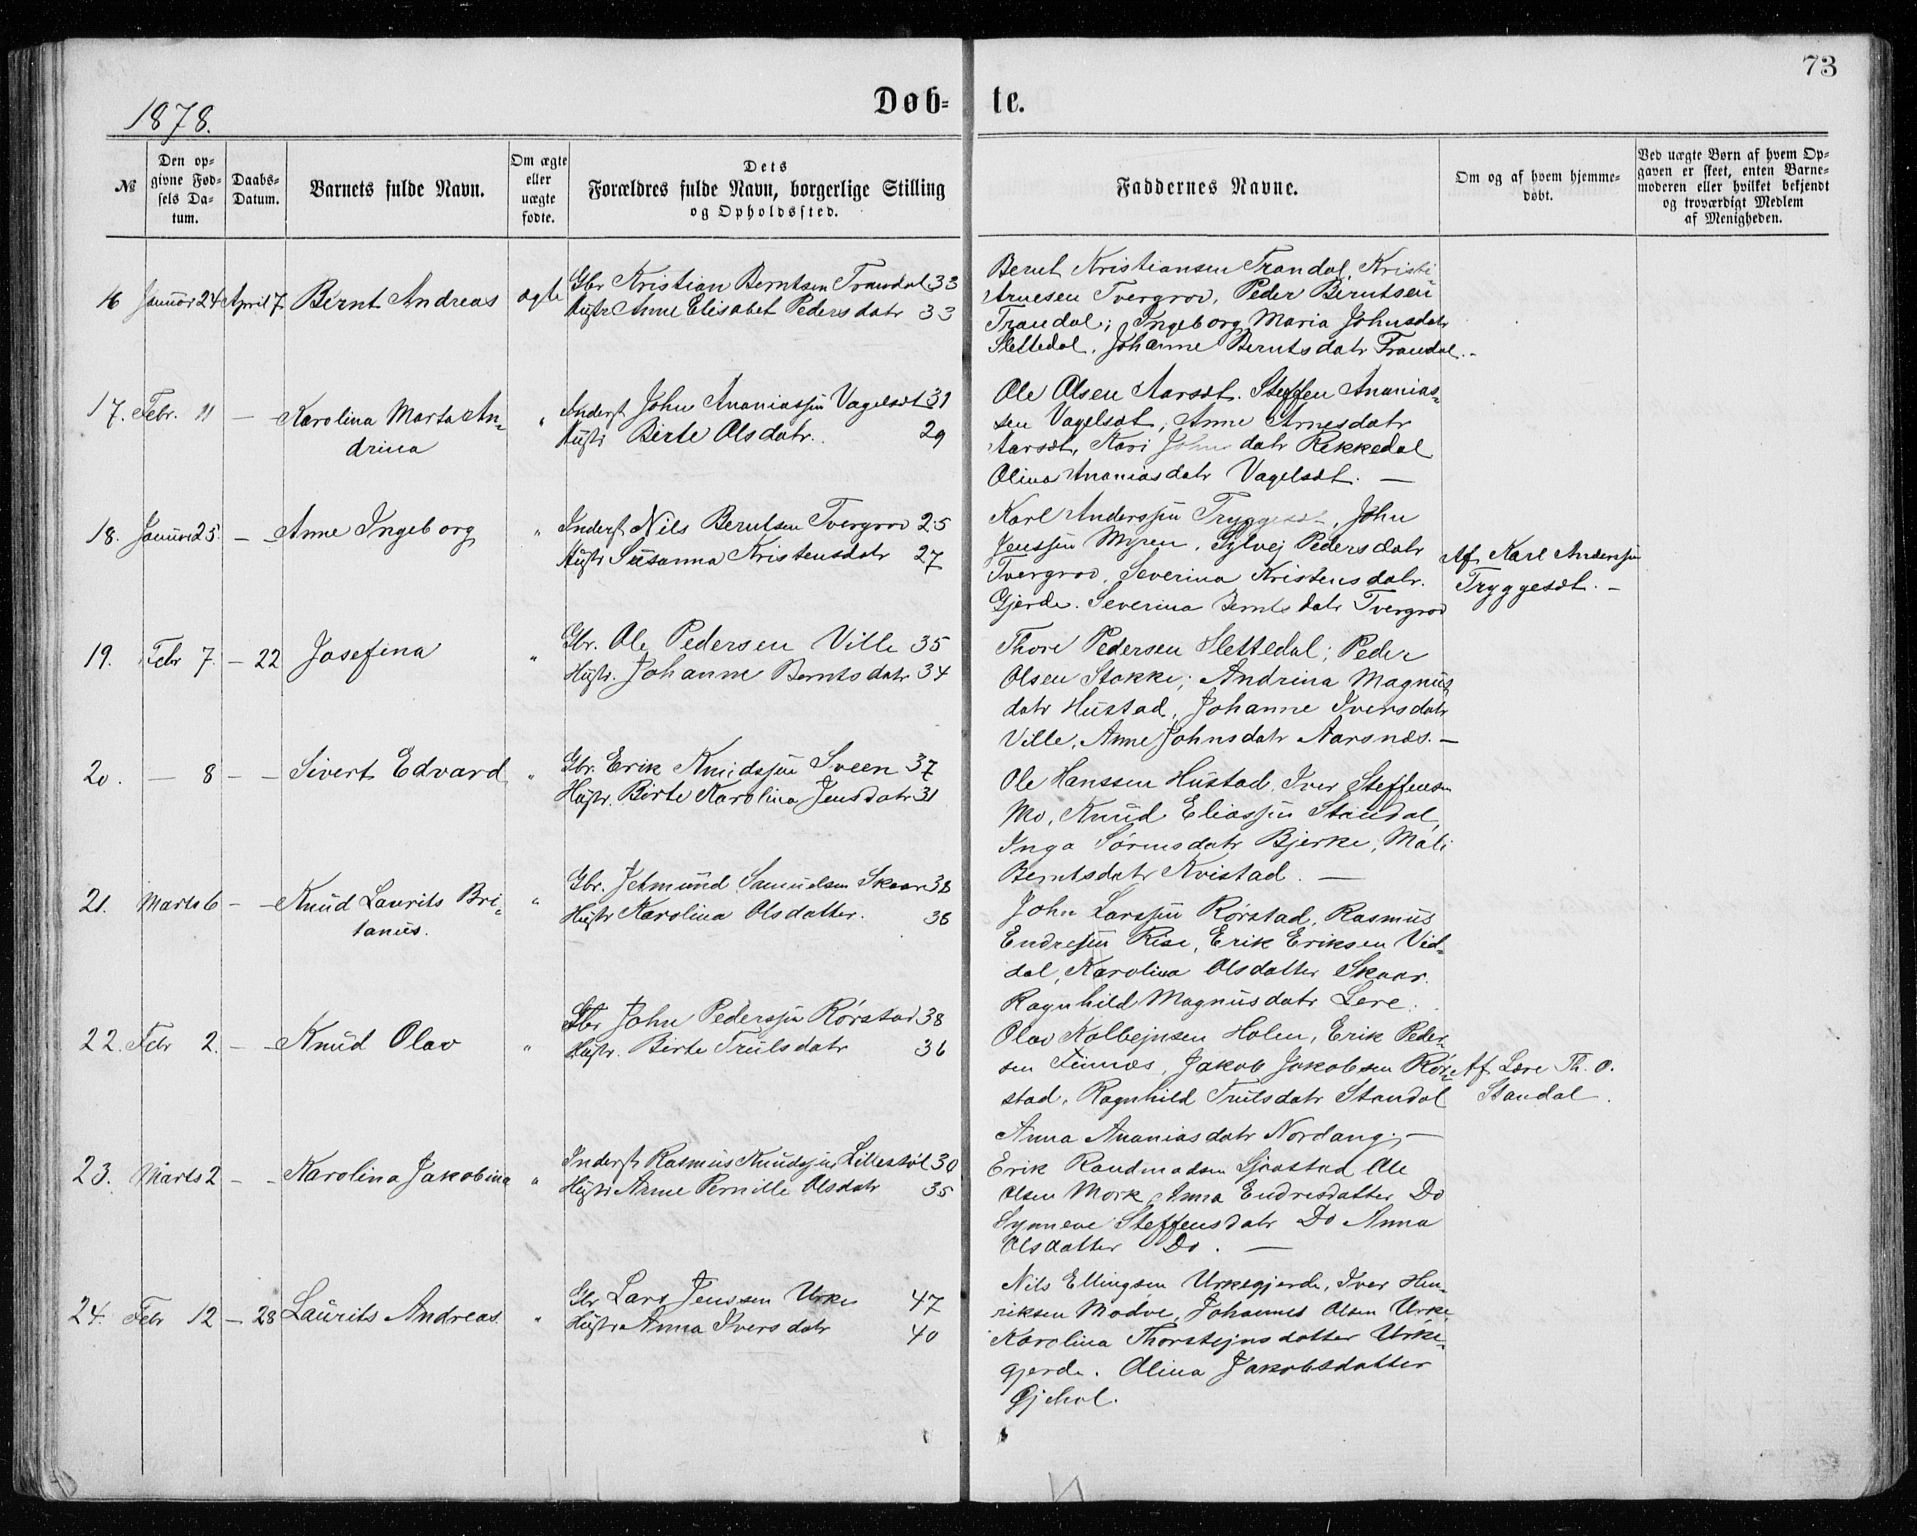 73
1878.
Døb- te.
№
Den op-
givne Fød-
sels Da-
tum.
Daabs-
Datum.
Barnets fulde Navn.
Om ægte
eller
uægte
fødte.
Dets
Forældres fulde Navn, borgerlige Stilling
og Opholdssted.
Faddernes Navne.
Om og af hvem hjemme-
døbt.
Ved uægte Børn af hvem Op-
gaven er skeet, enten Barne-
moderen eller hvilket bekjendt
og troværdigt Medlem
af Menigheden.
16 Januar 24 April 7. Bernt Andreas ægte
Gbr Kristian Berntsen Trandal 33
Hustr Anne Elisabet Pedersdatr 33
Bernt Kristiansen Trandal, Kristi
Arnesen Tvergrov, Peder Berntsen
Trandal; Ingeborg Maria Johnsdatr
Slettedal, Johanne Berntsdatr Trandal.-
17. Febr. 11 — Karolina Marta An-
drina
"
Inderst John Ananiassen Vagelsæt 31
Hustr Birte Olsdatr. 29
Ole Olsen Aarsæt. Steffen Ananias-
sen Vagelsæt, Anne Arnesdatr
Aarsæt, Kari John datr Rekkedal
Olina Ananiasdatr Vagelsæt. —
18. Januar 25. — Anne Ingeborg "
Inderst Nils Berntsen Tvergrov 25
Hustr Susanna Kristensdatr 27
Karl Anderssen Tryggesæt, John
Jenssen Myren, Sylvej Pedersdatr
Tvergrov, Severina Kristensdatr.
Gjerde. Severina Berntsdatr Tvergrov
Af Karl Anderssen
Tryggesæt. -
19. Febr 7. — 22 Josefina "
Gbr. Ole Pedersen Ville 35
Hustr. Johanne Berntsdatr 34
Thore Pedersen Slettedal; Peder
Olsen Stokke; Andrina Magnus
datr Hustad, Johanne Iversdatr
Ville, Anne Johnsdatr Aarsnes. —
20. — 8 — — Sivert Edvard "
Gbr. Erik Knudssen Sveen 37
Hustr. Birte Karolina Jensdatr 31
Ole Hanssen Hustad, Iver Steffensen
Mo, Knud Eliassen Standal,
Inga Sørensdatr Bjerke, Mali
Berntsdatr Kvistad. —
21. Marts 6 — — Knud Laurits Bri-
tanius.
"
Gbr. Jetmund Samuelsen Skaar 38
Hustr Karolina Olsdatter. 38
John Larssen Rørstad, Rasmus
Endresen Rise, Erik Eriksen Vid-
dal, Karolina Olsdatter Skaar.
Ragnhild Magnusdatr Lere.
22. Febr 2. — Knud Olav "
Gbr John Pederssen Rørstad 38
Hustr. Birte Trulsdatr 36
Olav Kolbejnsen Holen, Erik Peder-
sen Finnes, Jakob Jakobsen Rør-
stad, Ragnhild Trulsdatr Standal
Anna Ananiasdatr Nordang. —
Af Lære Th. O.
Standal.
23. Marts 2 — — Karolina Jakobina "
Inderst Rasmus Knudssen Lillestøl 30
Hustr Anne Pernille Olsdatr 35
Erik Raudmodsen Sjøstad Ole
Olsen Mork, Anna Endresdatter Do
Synneve Steffensdatr Do Anna
Olsdatter Do. —
24. Febr 12 — 28 Laurits Andreas. "
Gbr Lars Jenssen Urke 47
Hustr Anna Iversdatr 40
Nils Ellingsen Urkegjerde, Iver Hen-
riksen Modve, Johannes Olsen Urke,
Karolina Thorstejnsdatter Urke-
gjerde. Olina Jakobsdatter